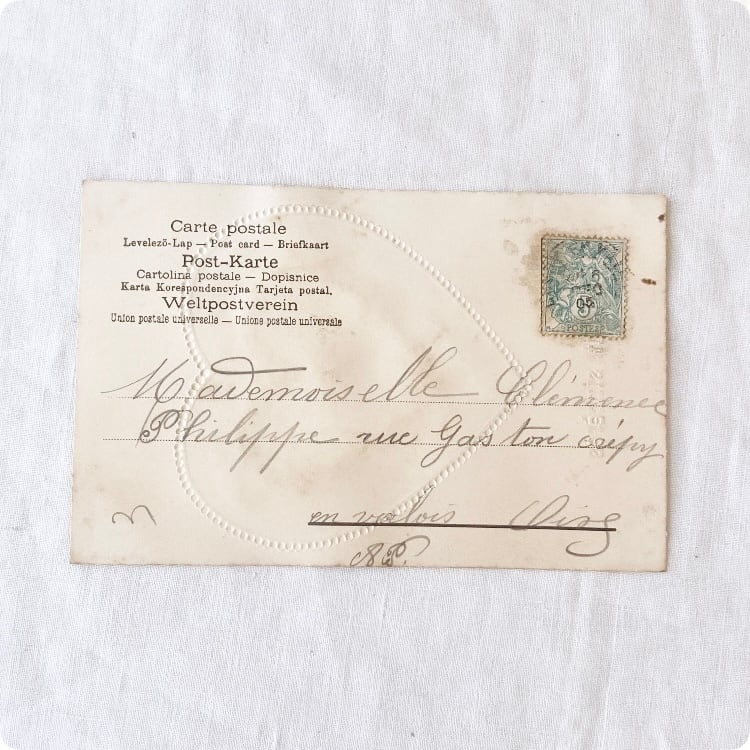 Carte postale
Levelezö-Lap — Post card — Briefkaart
Post-Karte
Cartolina postale — Dopisnice
Karta Korespondencyjna Tarjeta postal.
Weltpostverein
Union postale universelle — Unione postale universale
5
POSTES
05
Mademoiselle Clémence
Philippe rue Gaston crépy
en valois